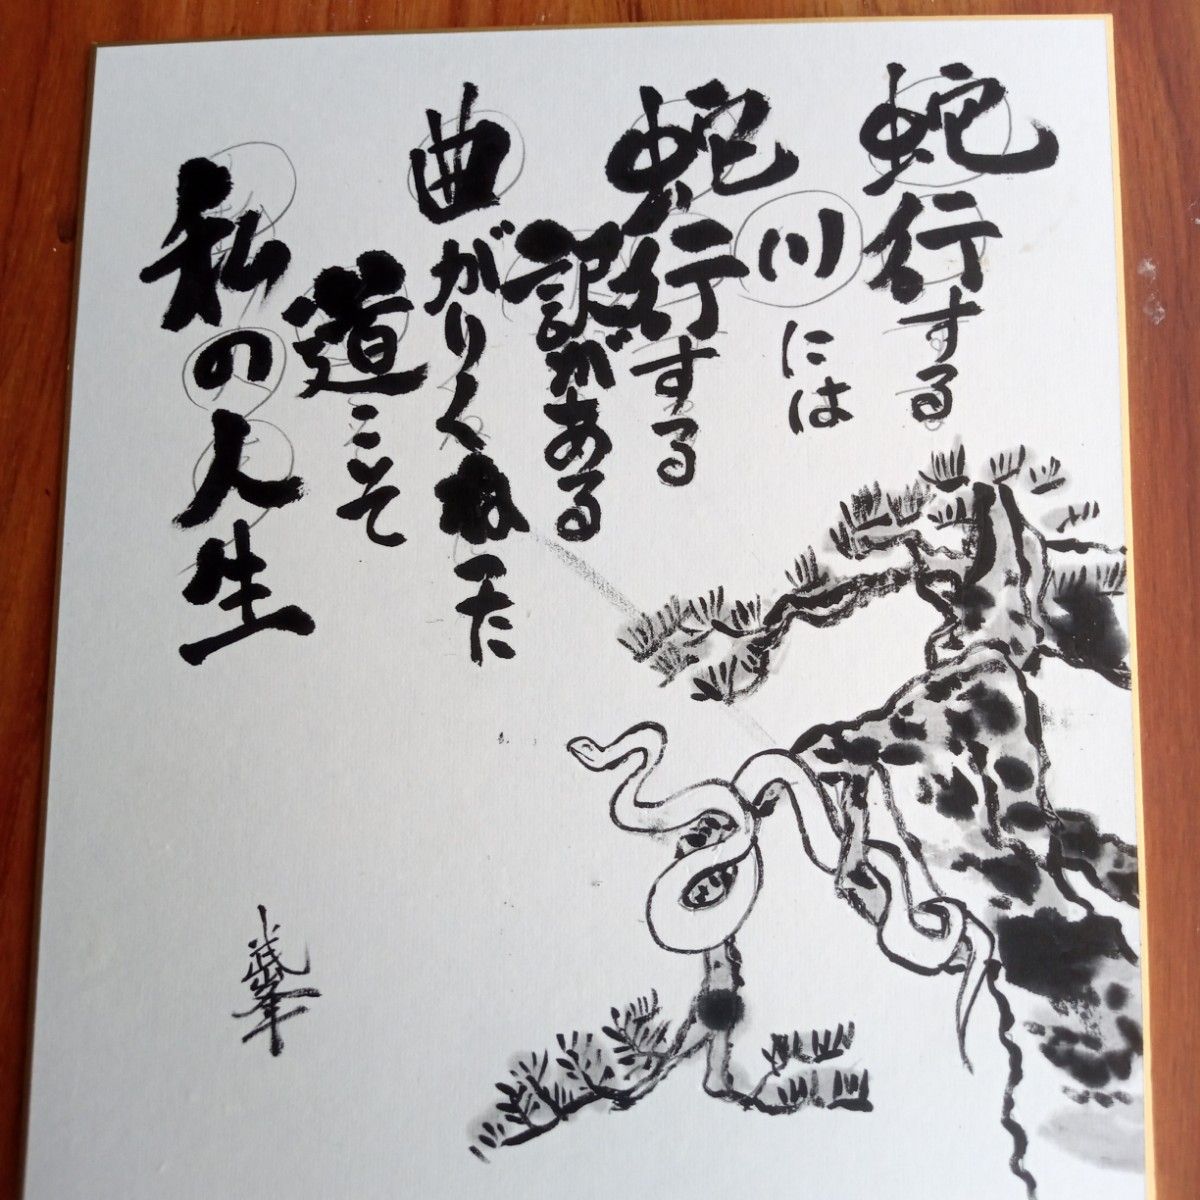 蛇行する
川には
蛇行する
訳がある
曲がりくねった
道こそ
私の人生
武峯